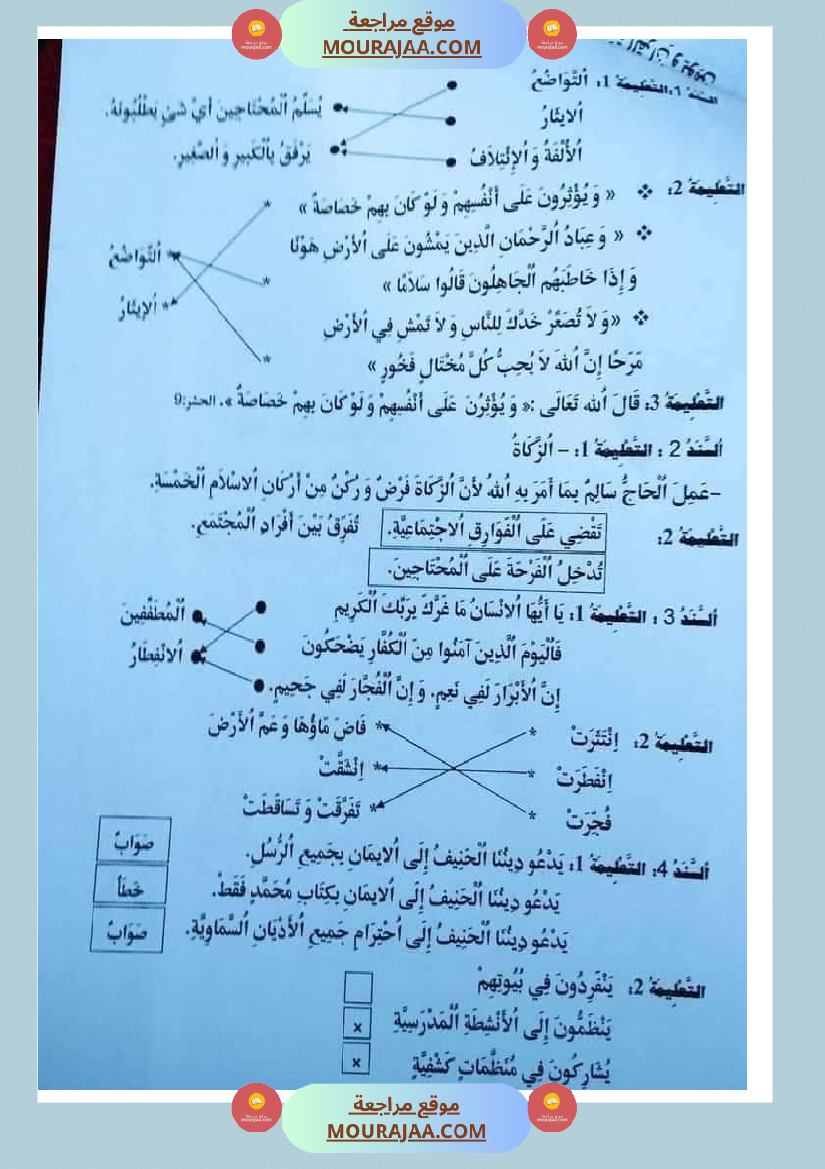 موقع مراجعة
MOURAJAA.COM
السَّنَدُ 1: التَّعْلِيمَةُ 1: اَلتَّوَاضُعُ
يُسَلِّمُ اُلْمُحْتَاجِينَ أَيَّ شَيْءٍ يَطْلُبُونَهُ.
اَلْايثَارُ
اَلْأُلْفَةُ وَ اُلْإِئْتِلَافُ
يَرْفَقُ بِالْكَبِيرِ وَ اُلصَّغِيرِ.
التَّعْلِيمَةُ 2:
« وَ يُؤْثِرُونَ عَلَى أَنْفُسِهِمْ وَ لَوْ كَانَ بِهِمْ خَصَاصَةٌ »
« وَ عِبَادُ اُلرَّحْمَانِ اُلَّذِينَ يَمْشُونَ عَلَى اُلْأَرْضِ هَوْنًا
اَلتَّوَاضُعُ
وَ إِذَا خَاطَبَهُم اُلْجَاهِلُونَ قَالُوا سَلَامًا »
اَلْإِيثَارُ
«وَ لَا تُصَعِّرْ خَدَّكَ لِلنَّاسِ وَ لَا تَمْشِ فِي اُلْأَرْضِ
مَرَحًا إِنَّ اُللهَ لَا يُحِبُّ كُلَّ مُخْتَالٍ فَخُورٍ »
التَّعْلِيمَةُ 3: قَالَ اُلله تَعَالَى :« وَ يُؤْثِرُنَ عَلَى أَنْفُسِهِمْ وَ لَوْ كَانَ بِهِمْ خَصَاصَةٌ ». الحشر:9
اَلسَّنَدُ 2 : التَّعْلِيمَةُ 1: – اَلزَّكَاةُ
–عَمِلَ اُلْحَاجُّ سَالِمٌ بِمَا أَمَرَ بِهِ اُللهُ لأَنَّ اُلزَّكَاةَ فَرْضٌ وَ رُكْنٌ مِنْ أَرْكَانِ اُلاسْلَامِ اُلْخَمْسَةِ.
التَّعْلِيمَةُ 2: تَقْضِي عَلَى اُلْفَوَارِقِ اُلاجْتِمَاعِيَّةِ. تُفَرِّقُ بَيْنَ أَفْرَادِ اُلْمُجْتَمَعِ.
تُدْخِلُ اُلْفَرْحَةَ عَلَى اُلْمُحْتَاجِينَ.
اَلسَّنَدُ 3 : التَّعْلِيمَةُ 1: يَا أَيُّهَا اُلانْسَانُ مَا غَرَّكَ بِرَبِّكَ اُلْكَرِيمِ
اَلْمُطَفِّفِينَ
فَاُلْيَوْمَ اُلَّذِينَ آمَنُوا مِنَ اُلْكُفَّارِ يَضْحَكُونَ
اَلانْفِطَارُ
إِنَّ اُلْأَبْرَارَ لَفِي نَعِمٍ، وَ إِنَّ اُلْفُجَّارَ لَفِي جَحِيمٍ.
التَّعْلِيمَةُ 2: اِنْتَثَرَتْ
فَاضَ مَاؤُهَا وَ عَمَّ اُلْأَرْضَ
اِنْفَطَرَتْ
اِنْشَقَّتْ
فُجِّرَتْ
تَفَرَّقَتْ وَ تَسَاقَطَتْ
اَلسَّنَدُ 4: التَّعْلِيمَةُ 1: يَدْعُو دِينُنَا اُلْحَنِيفُ إِلَى اُلايمَانِ بِجَمِيعِ اُلرُّسُلِ. صَوَابٌ
يَدْعُو دِينُنَا اُلْحَنِيفُ إِلَى اُلايمَانِ بِكِتَابِ مُحَمَّدٍ فَقَطْ. خَطَأٌ
يَدْعُو دِينُنَا اُلْحَنِيفُ إِلَى اُحْتِرَامِ جَمِيعِ اُلْأَدْيَانِ اُلسَّمَاوِيَّةِ. صَوَابٌ
التَّعْلِيمَةُ 2: يَنْفَرِدُونَ فِي بُيُوتِهِمْ
يَنْظَمُّونَ إِلَى اُلْأَنْشِطَةِ اُلْمَدْرَسِيَّةِ x
يُشَارِكُونَ فِي مُنَظَّمَاتٍ كَشْفِيَّةٍ x
موقع مراجعة
MOURAJAA.COM